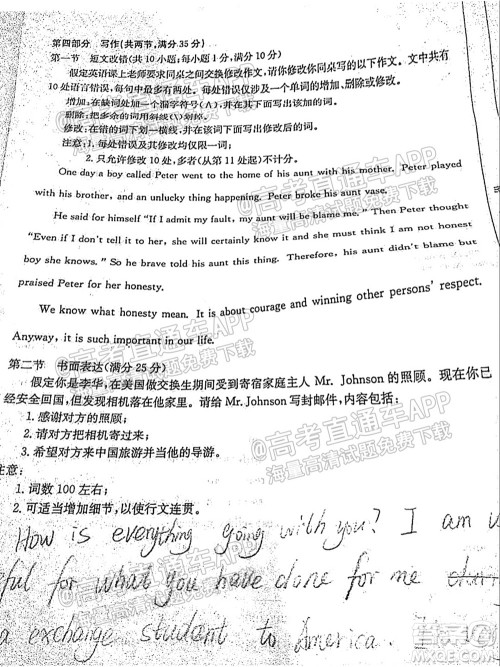 第四部分 写作(共两节,满分35分)
第一节 短文改错(共10小题;每小题1分,满分10分)
假定英语课上老师要求同桌之间交换修改作文,请你修改你同桌写的以下作文。文中共有
10处语言错误,每句中最多有两处。每处错误仅涉及一个单词的增加、删除或修改。
增加:在缺词处加一个漏字符号(∧),并在其下面写出该加的词。
删除:把多余的词用斜线(\)划掉。
修改:在错的词下划一横线,并在该词下面写出修改后的词。
注意:1.每处错误及其修改均仅限一词;
2.只允许修改10处,多者(从第11处起)不计分。
One day a boy called Peter went to the home of his aunt with his mother. Peter played
with his brother, and an unlucky thing happening. Peter broke his aunt vase.
He said for himself "If I admit my fault, my aunt will be blame me." Then Peter thought
"Even if I don't tell it to her, she will certainly know it and she must think I am not honest
boy she knows." So he brave told his aunt this thing. Therefore, his aunt didn't blame but
praised Peter for her honesty.
We know what honesty mean. It is about courage and winning other persons' respect.
Anyway, it is such important in our life.
第二节 书面表达(满分25分)
假定你是李华,在美国做交换生期间受到寄宿家庭主人 Mr. Johnson 的照顾。现在你已
经安全回国,但发现相机落在他家里。请给 Mr. Johnson 写封邮件,内容包括:
1.感谢对方的照顾;
2.请对方把相机寄过来;
3.希望对方来中国旅游并当他的导游。
注意:
1.词数100左右;
2.可适当增加细节,以使行文连贯。
How is everything going with you? I am
for what you have done for me
a exchange student to America. I
@高考直通车APP
海量高清试题免费下载
@高考直通车APP
海量高清试题免费下载
答案
MXQE.COM